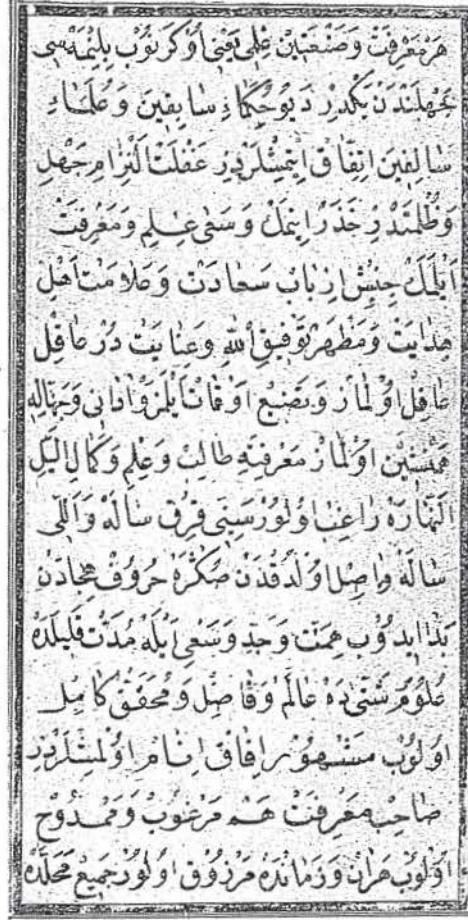 هَر مَعْرِفَتْ وَصَنْعَتِيْن عِلْمِى يَعْنِى اُوكَرَنُوبْ بِلِيْمَه سِى
جَهْلَنْدَنْ يَكْدِرْ دَيُو حُكَمَاءِ سَابِقِينَ وَعُلَمَاءِ
سَالِفِينَ اِتِّفَاقْ اِيتْمِشْلَرْدِرْ غَفْلَتْ اِلْتِزَامِ جَهْلِ
وَظُلْمَتْدِرْ حَذَرْ اِيتْمَكْ وَسَعْىِ عِلِمْ وَمَعْرِفَتْ
اَيْلَمَكْ جِنْبِشِ اَرْبَابِ سَعَادَتْ وَعَلَامَتِ اَهْلِ
هِدَايَتْ وَمَظْهَرِ تَوْفِيقِ اللهِ وَعِنَايَتْ دُرْ عَاقِل
غَافِلْ اُولْمَازْ وَتَضْيِيعِ اَوْقَاتْ اَيْلَمَزْ وَادَانِى وَجُهَّالِه
هَمْنِشِينْ اُولْمَازْ مَعْرِفَتِه طَالِبْ وَعِلْمِ وَكَمَالِ اللَّيْل
النَّهَارَه رَاغِبْ اُولُورْ سِنِّى قِرْقْ سَالَه وَاَللِّى
سَالَه وَاصِلْ اُولْدُقْدَنْ صُكْرَه حُرُوفْ هِجَادَنْ
بَدْا اِيدُوبْ هِمَّتْ وَجِدِّ وَسَعْىِ اَيْلَه مُدَّتِ قَلِيلَدَه
عُلُومِ شَتَّى دَه عَالِمْ وَفَاضِلْ وَمُحَقِّقْ كَامِل
اُولُوبْ مَشْهُورِ اٰفَاقِ اَنَامْ اُولْمِشْلَرْدِرْ
صَاحِبِ مَعْرِفَتْ هَمْ مَرْغُوبْ وَمَمْدُوحْ
اُولُوبْ هَرْ اٰنْ وَزَمَانْدَه مَرْزُوقْ اُولُورْ جَمِيعِ مَحَلْدَه